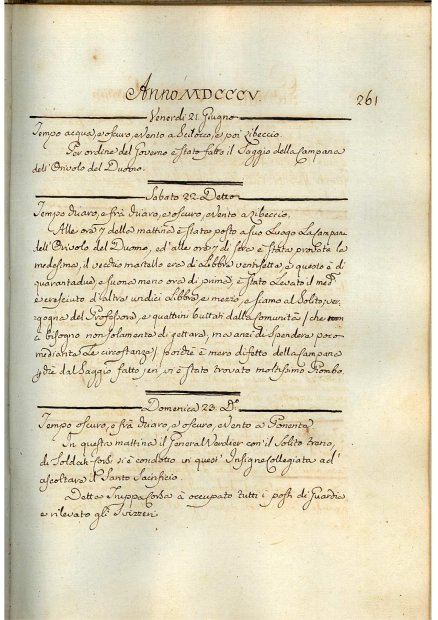 Anno MDCCCV.
261
Venerdi 21. Giugno
Tempo acqua, e oscuro, e vento a Scilocco, e poi Libeccio.
Per ordine del Governo è stato fatto il Saggio della Campana
dell'Orivolo del Duomo.
Sabato 22. Detto
Tempo chiaro, e frà chiaro, e oscuro, e vento a Libeccio.
Alle ore 7 della mattina è stata posto a suo Luogo la Campana
dell'Orivolo del Duomo, ed'alle ore 7 di sera è stata provata la
medesima, il vecchio martello era di Libbre ventisetta, e questo è di
quarantadue, e suona meno ora di prima, è stato Levato il med.
e cresciuto d'altre undici Libbre, e mezzo, e siamo al Solito, ver,
gogna del Professore, e quattrini buttati dalla Comunità / che
ci bisogno non solamente di gettare, ma anzi di spendere poco
mediante le circostanze / poiche è mero difetto della Campana
dal Saggio fatto jeri vi è stato trovato moltissimo Piombo.
Domenica 23. D.o
Tempo oscuro, e frà chiaro, e oscuro, e vento a Ponente
In questa mattina il General Verdier con'il Solito treno,
di Soldati si è condotto in quest'Insigne Collegiata ad'
ascoltare il Santo Sacrifizio.
Detta Truppa Corsa à occupato tutti i posti di Guardia
e rilevato gli Svizzeri.